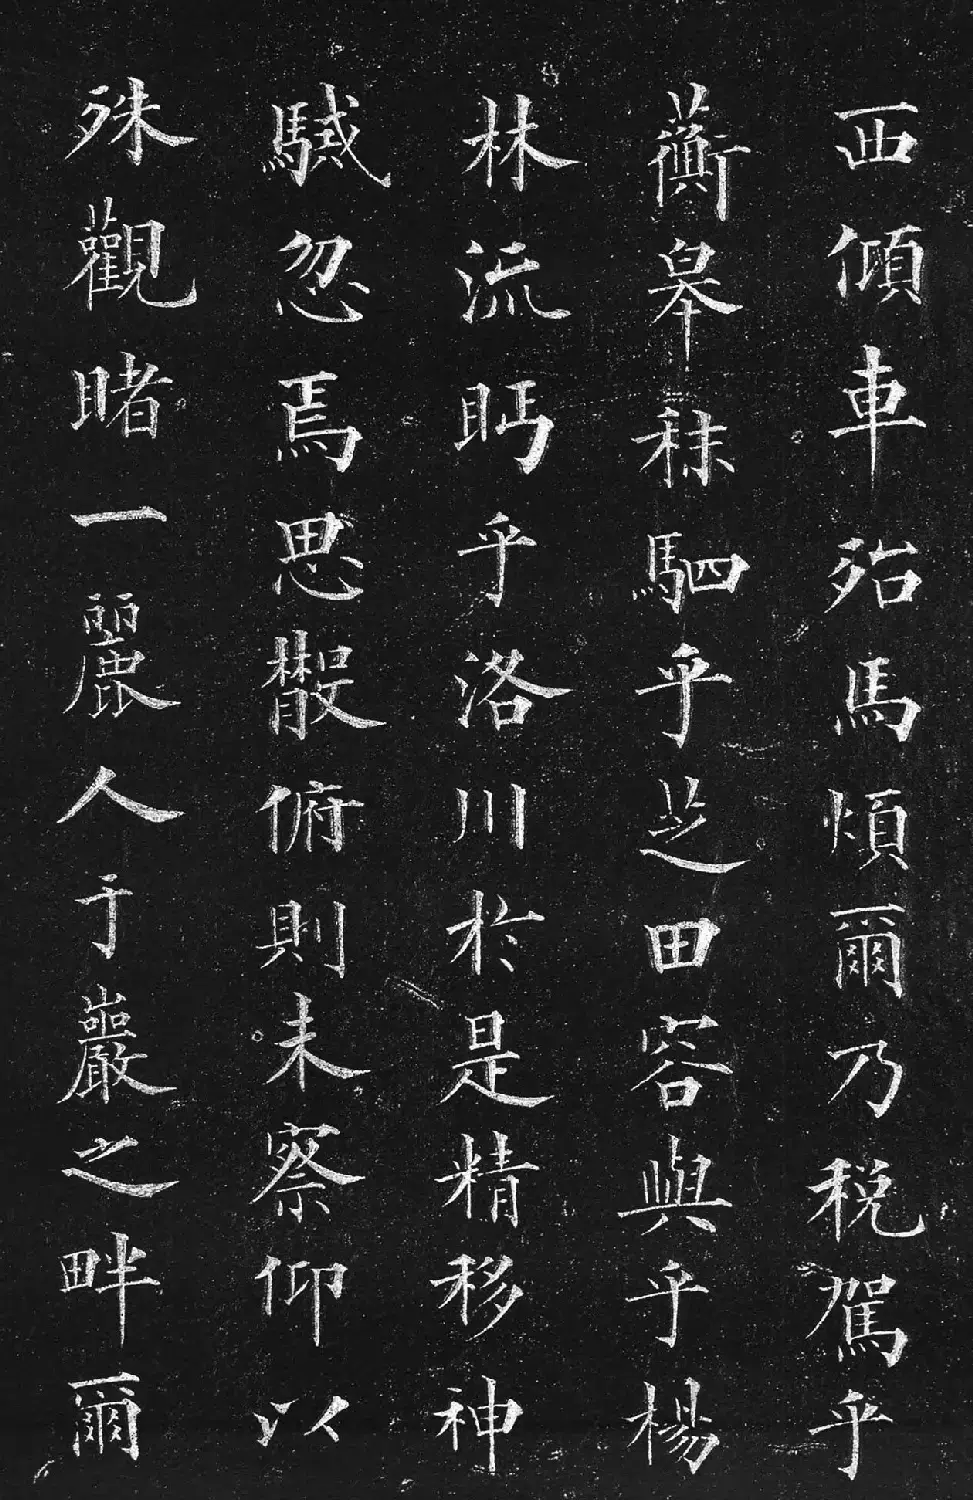 西傾車殆馬煩爾乃税駕乎
蘅皋秣駟乎芝田容與乎楊
林流眄乎洛川於是精移神
駭忽焉思散俯則未察仰以
殊觀睹一麗人于巖之畔爾